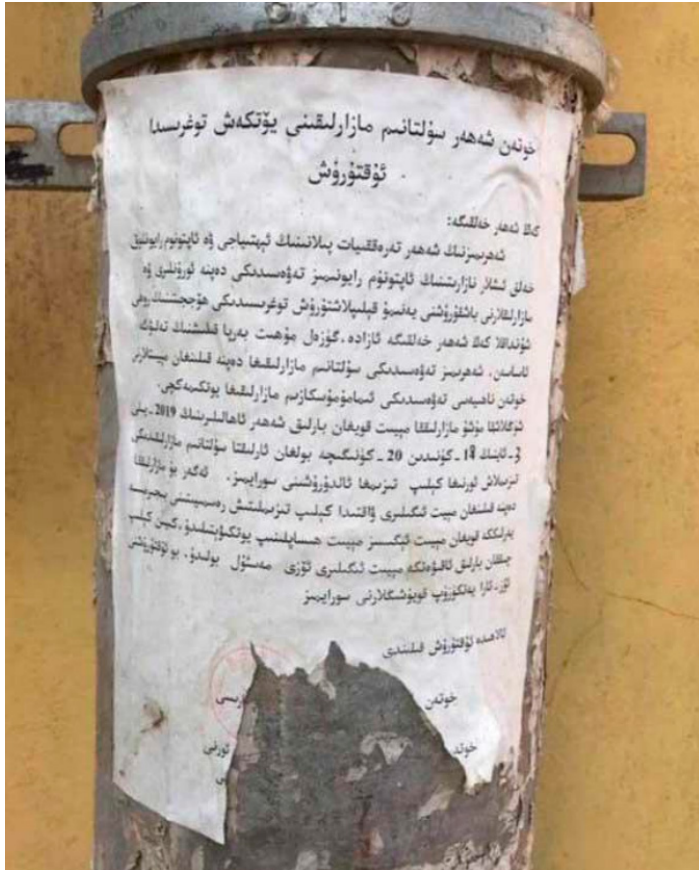 خوتەن شەھەر سۇلتانىم مازارلىقىنى يۆتكەش توغرىسىدا
ئۇقتۇرۇش
كەڭ شەھەر خەلقىگە:
شەھىرىمىزنىڭ شەھەر تەرەققىيات پىلانىنىڭ ئېھتىياجى ۋە ئاپتونوم رايونلۇق
خەلق ئىشلار نازارىتىنىڭ ئاپتونۇم رايونىمىز تەۋەسىدىكى دەپنە ئورۇنلىرى ۋە
مازارلىقلارنى باشقۇرۇشنى يەنىمۇ قېلىپلاشتۇرۇش توغرىسىدىكى ھۆججىتىنىڭ روھى
شۇنداقلا كەڭ شەھەر خەلقىگە ئازادە، گۈزەل مۇھىت بەرپا قىلىشنىڭ تەلۋىگە
ئاساسەن، شەھرىمىز تەۋەسىدىكى سۇلتانىم مازارلىقىغا دەپنە قىلىنغان مىيىتلارنى
خوتەن ناھىيەسى تەۋەسىدىكى ئىمامۇمۇسكازىم مازارلىقىغا يوتكىمەكچى.
ئۇڭلاشقا مۇشۇ مازارلىققا مىيىت قويغان بارلىق شەھەر ئاھالىلىرىنىڭ 2019-يىلى
3-ئاينىڭ 18-كۈنىدىن 20-كۈنىگىچە بولغان ئارلىقتا سۇلتانىم مازارلىقىدىكى
تىزىملاش ئورنىغا كىلىپ تىزىمغا ئالدۇرۇشنى سورايمىز. ئەگەر بۇ مازارلىققا
دەپنە قىلىنغان مىيىت ئىگىلىرى ۋاقتىدا كىلىپ تىزىملىتىش رەسمىيىتىنى بىجىرىسە
يەرلىككە قويغان مىيىت ئىگىسىز مىيىت ھىساپلىنىپ يوتكىۋىتىلىدۇ، كىيىن كىلىپ
چىققان بارلىق ئاقىۋەتكە مىيىت ئىگىلىرى ئۆزى مەسئۇل بولىدۇ. بۇ ئۇقتۇرۇشنى
ئۆز-ئارا يەتكۈزۈپ قويۇشىڭلارنى سورايمىز
ئالاھىدە ئۇقتۇرۇش قىلىندى
خوتەن
ئورنى